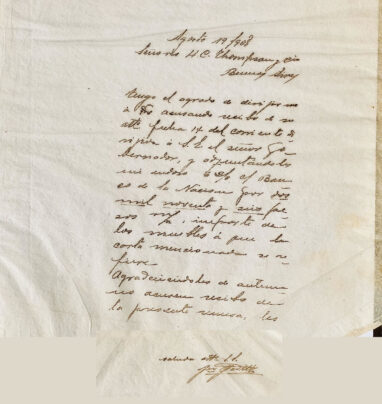 Agosto 19/908
Señores H. C. Thompson y Cía
Buenos Aires
Tengo el agrado de dirigirme
á Vds acusando recibo de su
atta fecha 14 del corriente di
rijida á S. E. el señor Go
bernador, y adjuntándole
mi endoso c/ Ban
co de la Nación por dos
mil noventa y seis pe
sos m/n, importe de
los muebles á que la
carta mencionada se re
fiere.
Agradeciéndoles de antema
no acusen recibo de
la presente, les
saluda atte S. S.